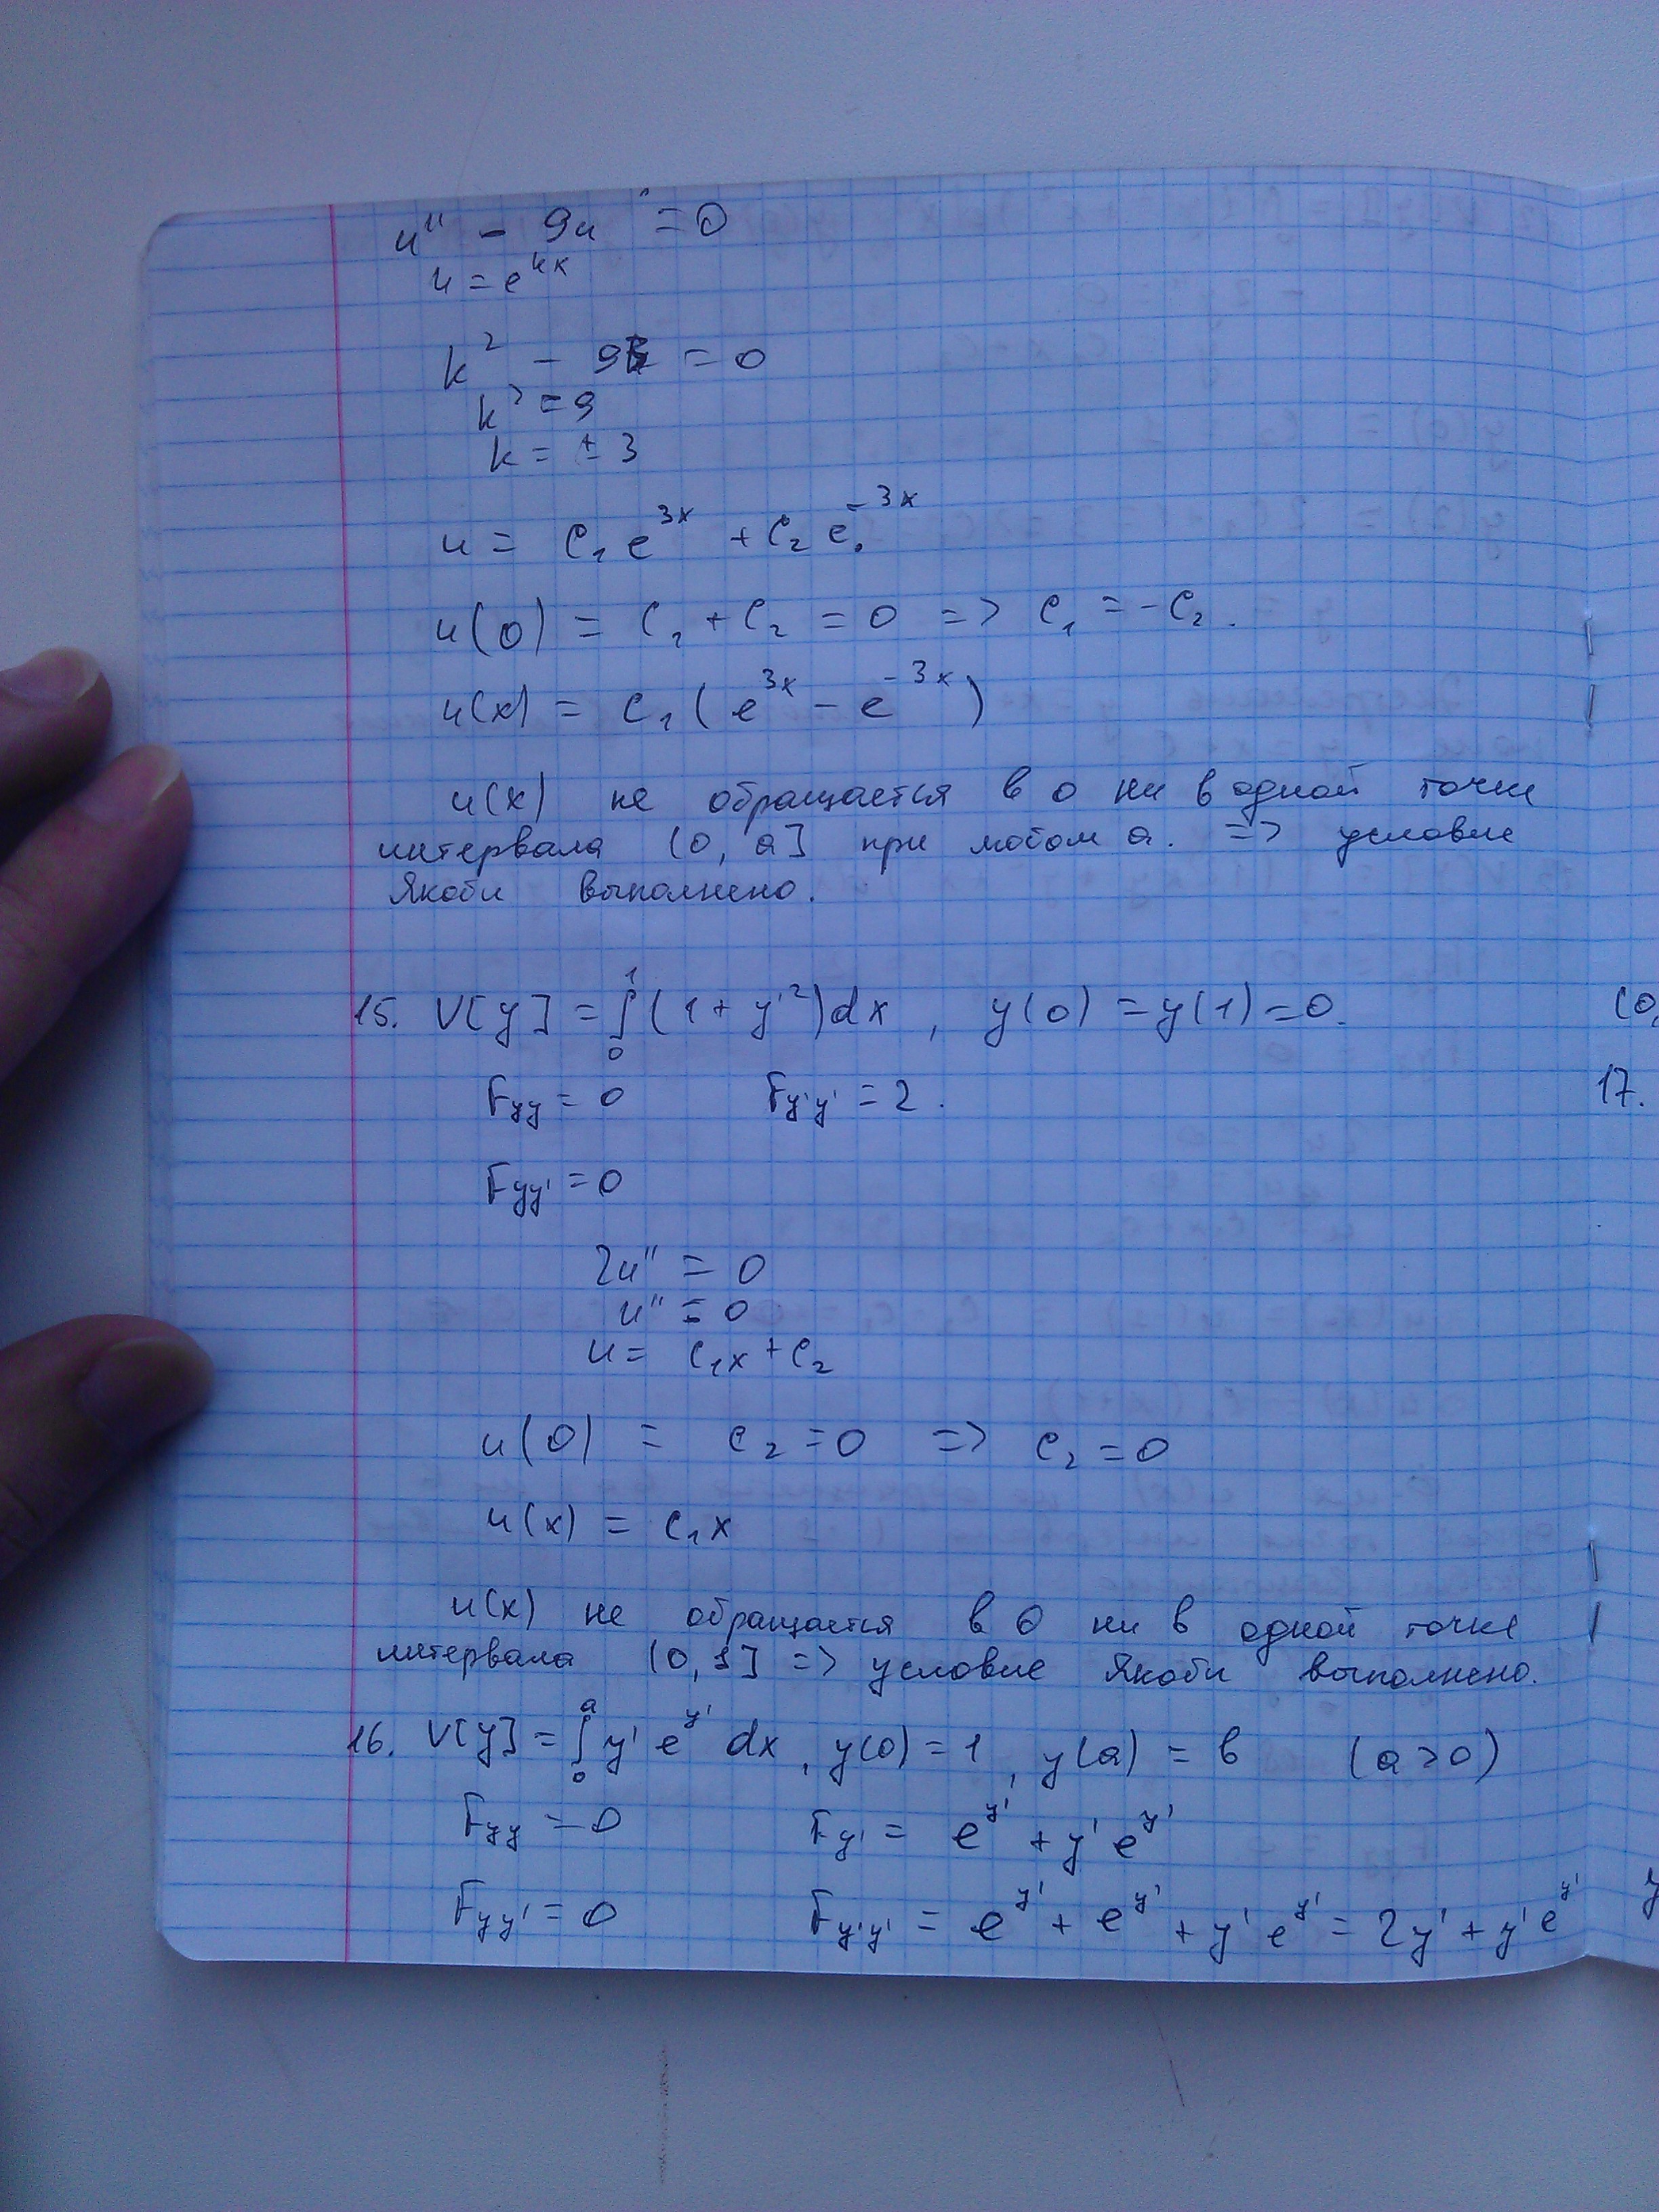 u'' - 9u = 0
u = e^{kx}
k² - 9 = 0
k² = 9
k = ± 3
u = C₁ e^{3x} + C₂ e^{-3x}
u(0) = C₁ + C₂ = 0 => C₁ = -C₂.
u(x) = C₁ ( e^{3x} - e^{-3x} )
u(x) не обращается в 0 ни в одной точке
интервала (0, a] при любом a. => условие
Якоби выполнено.
15. V[y] = ∫₀¹ (1 + y'²) dx , y(0) = y(1) = 0.
F_{yy} = 0 F_{y'y'} = 2.
F_{yy'} = 0
2u'' = 0
u'' = 0
u = C₁x + C₂
u(0) = C₂ = 0 => C₂ = 0
u(x) = C₁x
u(x) не обращается в 0 ни в одной точке
интервала (0, 1] => условие Якоби выполнено.
16. V[y] = ∫₀ᵃ y' e^{y'} dx , y(0) = 1 , y(a) = b (a > 0)
F_{yy} = 0 F_{y'} = e^{y'} + y' e^{y'}
F_{yy'} = 0 F_{y'y'} = e^{y'} + e^{y'} + y' e^{y'} = 2y' + y' e^{y'}
(0,
17.
y